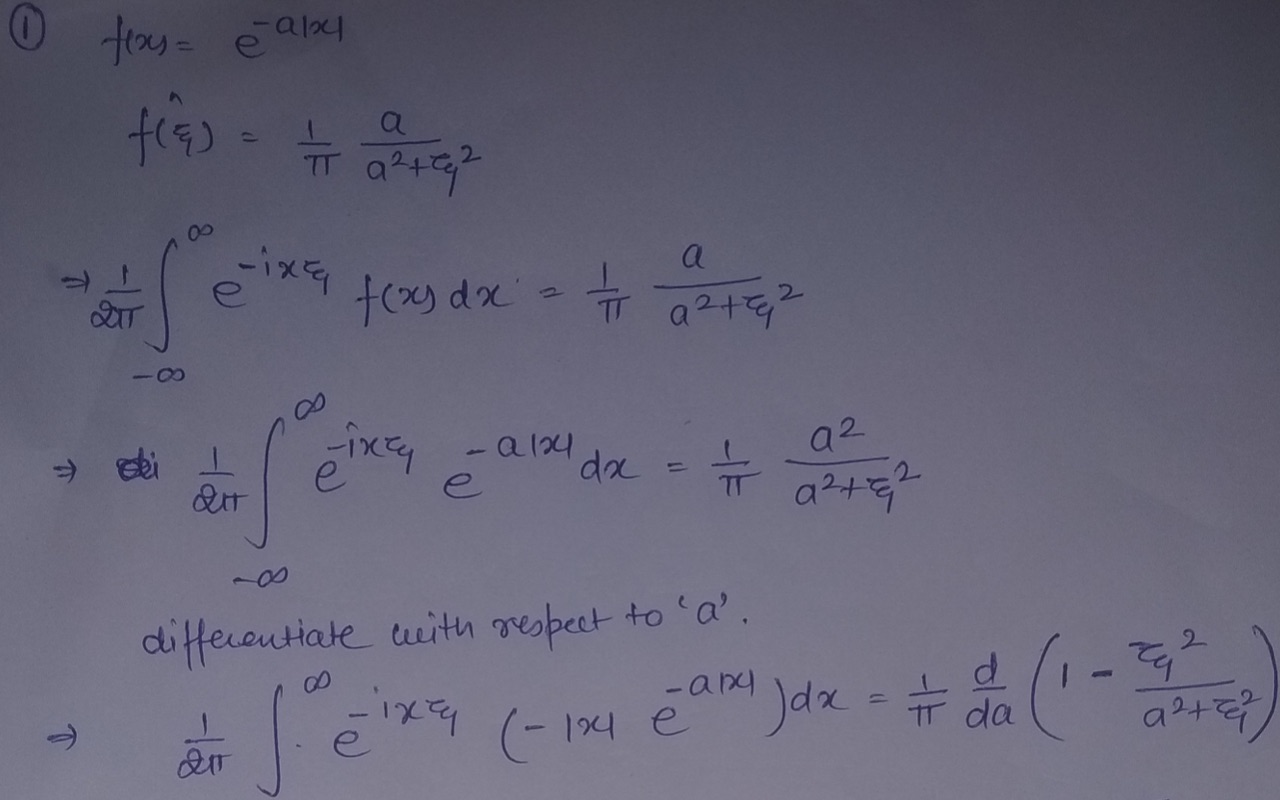 ① f(x) = e^{-a|x|}
f(ξ)^ = 1/π a/(a²+ξ²)
⇒ 1/2π ∫_{-∞}^{∞} e^{-ixξ} f(x) dx = 1/π a/(a²+ξ²)
⇒ 1/2π ∫_{-∞}^{∞} e^{-ixξ} e^{-a|x|} dx = 1/π a²/(a²+ξ²)
differentiate with respect to 'a'.
⇒ 1/2π ∫^{∞} e^{-ixξ} (-|x| e^{-a|x|}) dx = 1/π d/da (1 - ξ²/(a²+ξ²))